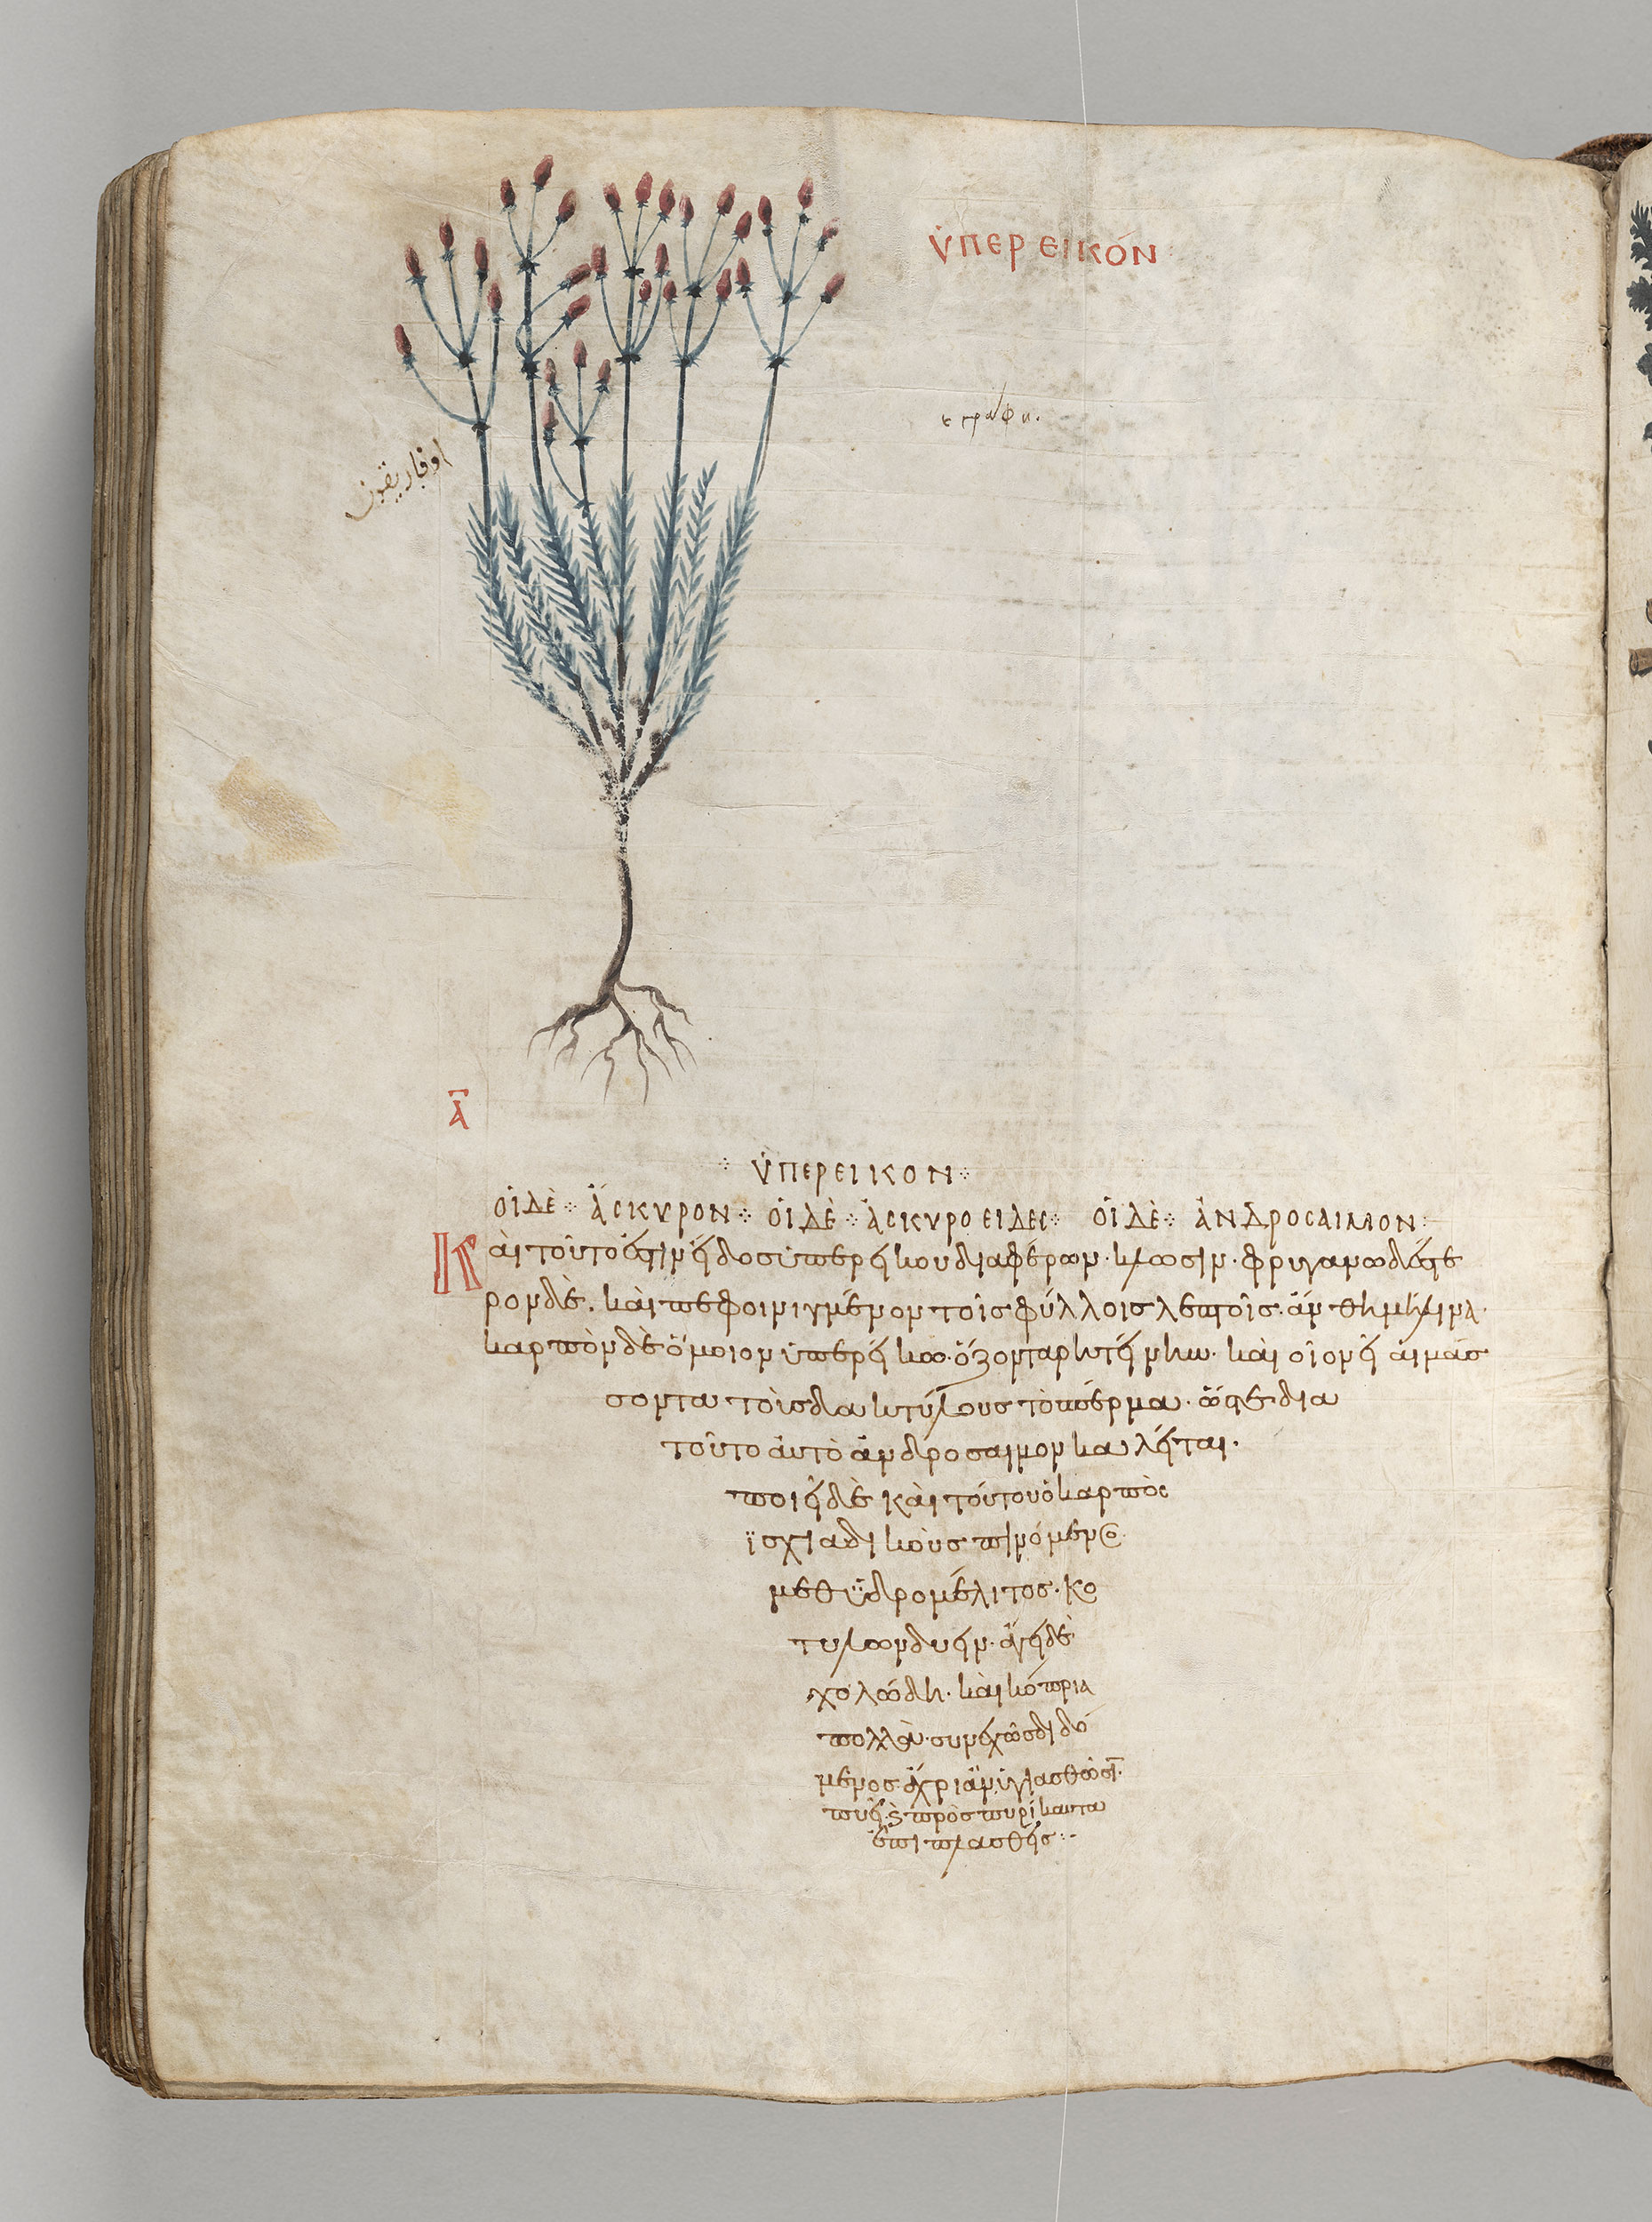 ὑπερεικόν
ἐγράφη.
اوفاريقون
Α
ὑπερεικον
οἱ δὲ ἄσκυρον οἱ δὲ ἀσκυροειδες οἱ δὲ ἀνδροσαιμον
Καὶ τοῦτο ἐστιν εἶδος ὑπερείκου διαφέρων. κλωσιν. φρυγανωδέστε
ρον δὲ. καὶ πεφοινιγμένον τοῖς φύλλοις λεπτοῖς. ἄνθη μήλινα.
καρπὸν δὲ ὅμοιον ὑπερείκω. ὄζοντα ρητείνης. καὶ οἷονεὶ αἱμάσ
σοντα τοὶς δακτύλους τὸ σπέρμα. ὥστε δια
τοῦτο ἀυτὸ ἀνδροσαιμον καλεῖται.
ποιεῖ δὲ καὶ τούτου ὁ καρπὸς
ϊσχιαδικοὺς πινόμενος
μεθ ὑδρομέλιτος. κο
τυλων δυεῖν. ἄγει δὲ
χολώδη. καὶ κόπρια
πολλὰ. συνεχῶς διδό
μενος ἄχρι ἂν ὑγιασθῶσι.
ποιεῖ πρὸς πυρίκαυτα
ἐπιπλασθείς